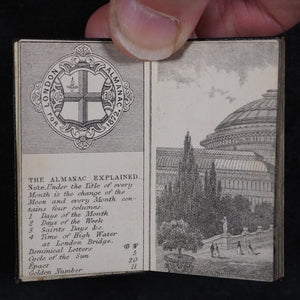 LONDON ALMANAC
FOR 1872
THE ALMANAC EXPLAINED.
Note. Under the Title of every
Month is the change of the
Moon and every Month con-
tains four columns.
1 Days of the Month
2 Days of the Week
3 Saints Days &c.
4 Time of High Water
at London Bridge.
Dominical Letters GF
Cycle of the Sun 5
Epact 20
Golden Number 11